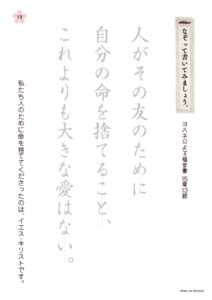 なぞって書いてみましょう。
ヨハネによる福音書 15章13節
人がその友のために
自分の命を捨てること、
これよりも大きな愛はない。
私たち人のために命を捨ててくださったのは、イエス・キリストです。